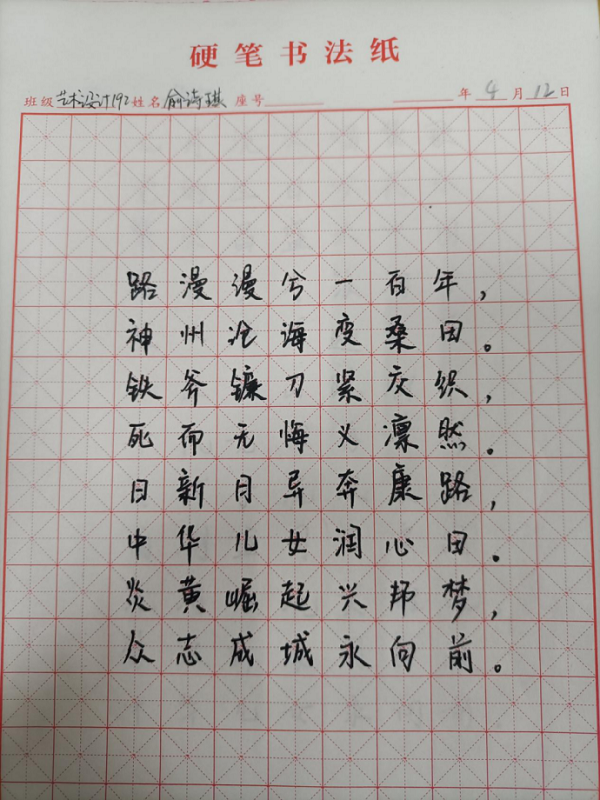 硬笔书法纸
班级 艺术设计192 姓名 俞诗琪 座号 年 4 月 12 日
路漫漫兮一百年，
神州沧海变桑田。
铁斧镰刀紧交织，
死而无悔义凛然。
日新月异奔康路，
中华儿女润心田。
炎黄崛起兴邦梦，
众志成城永向前。